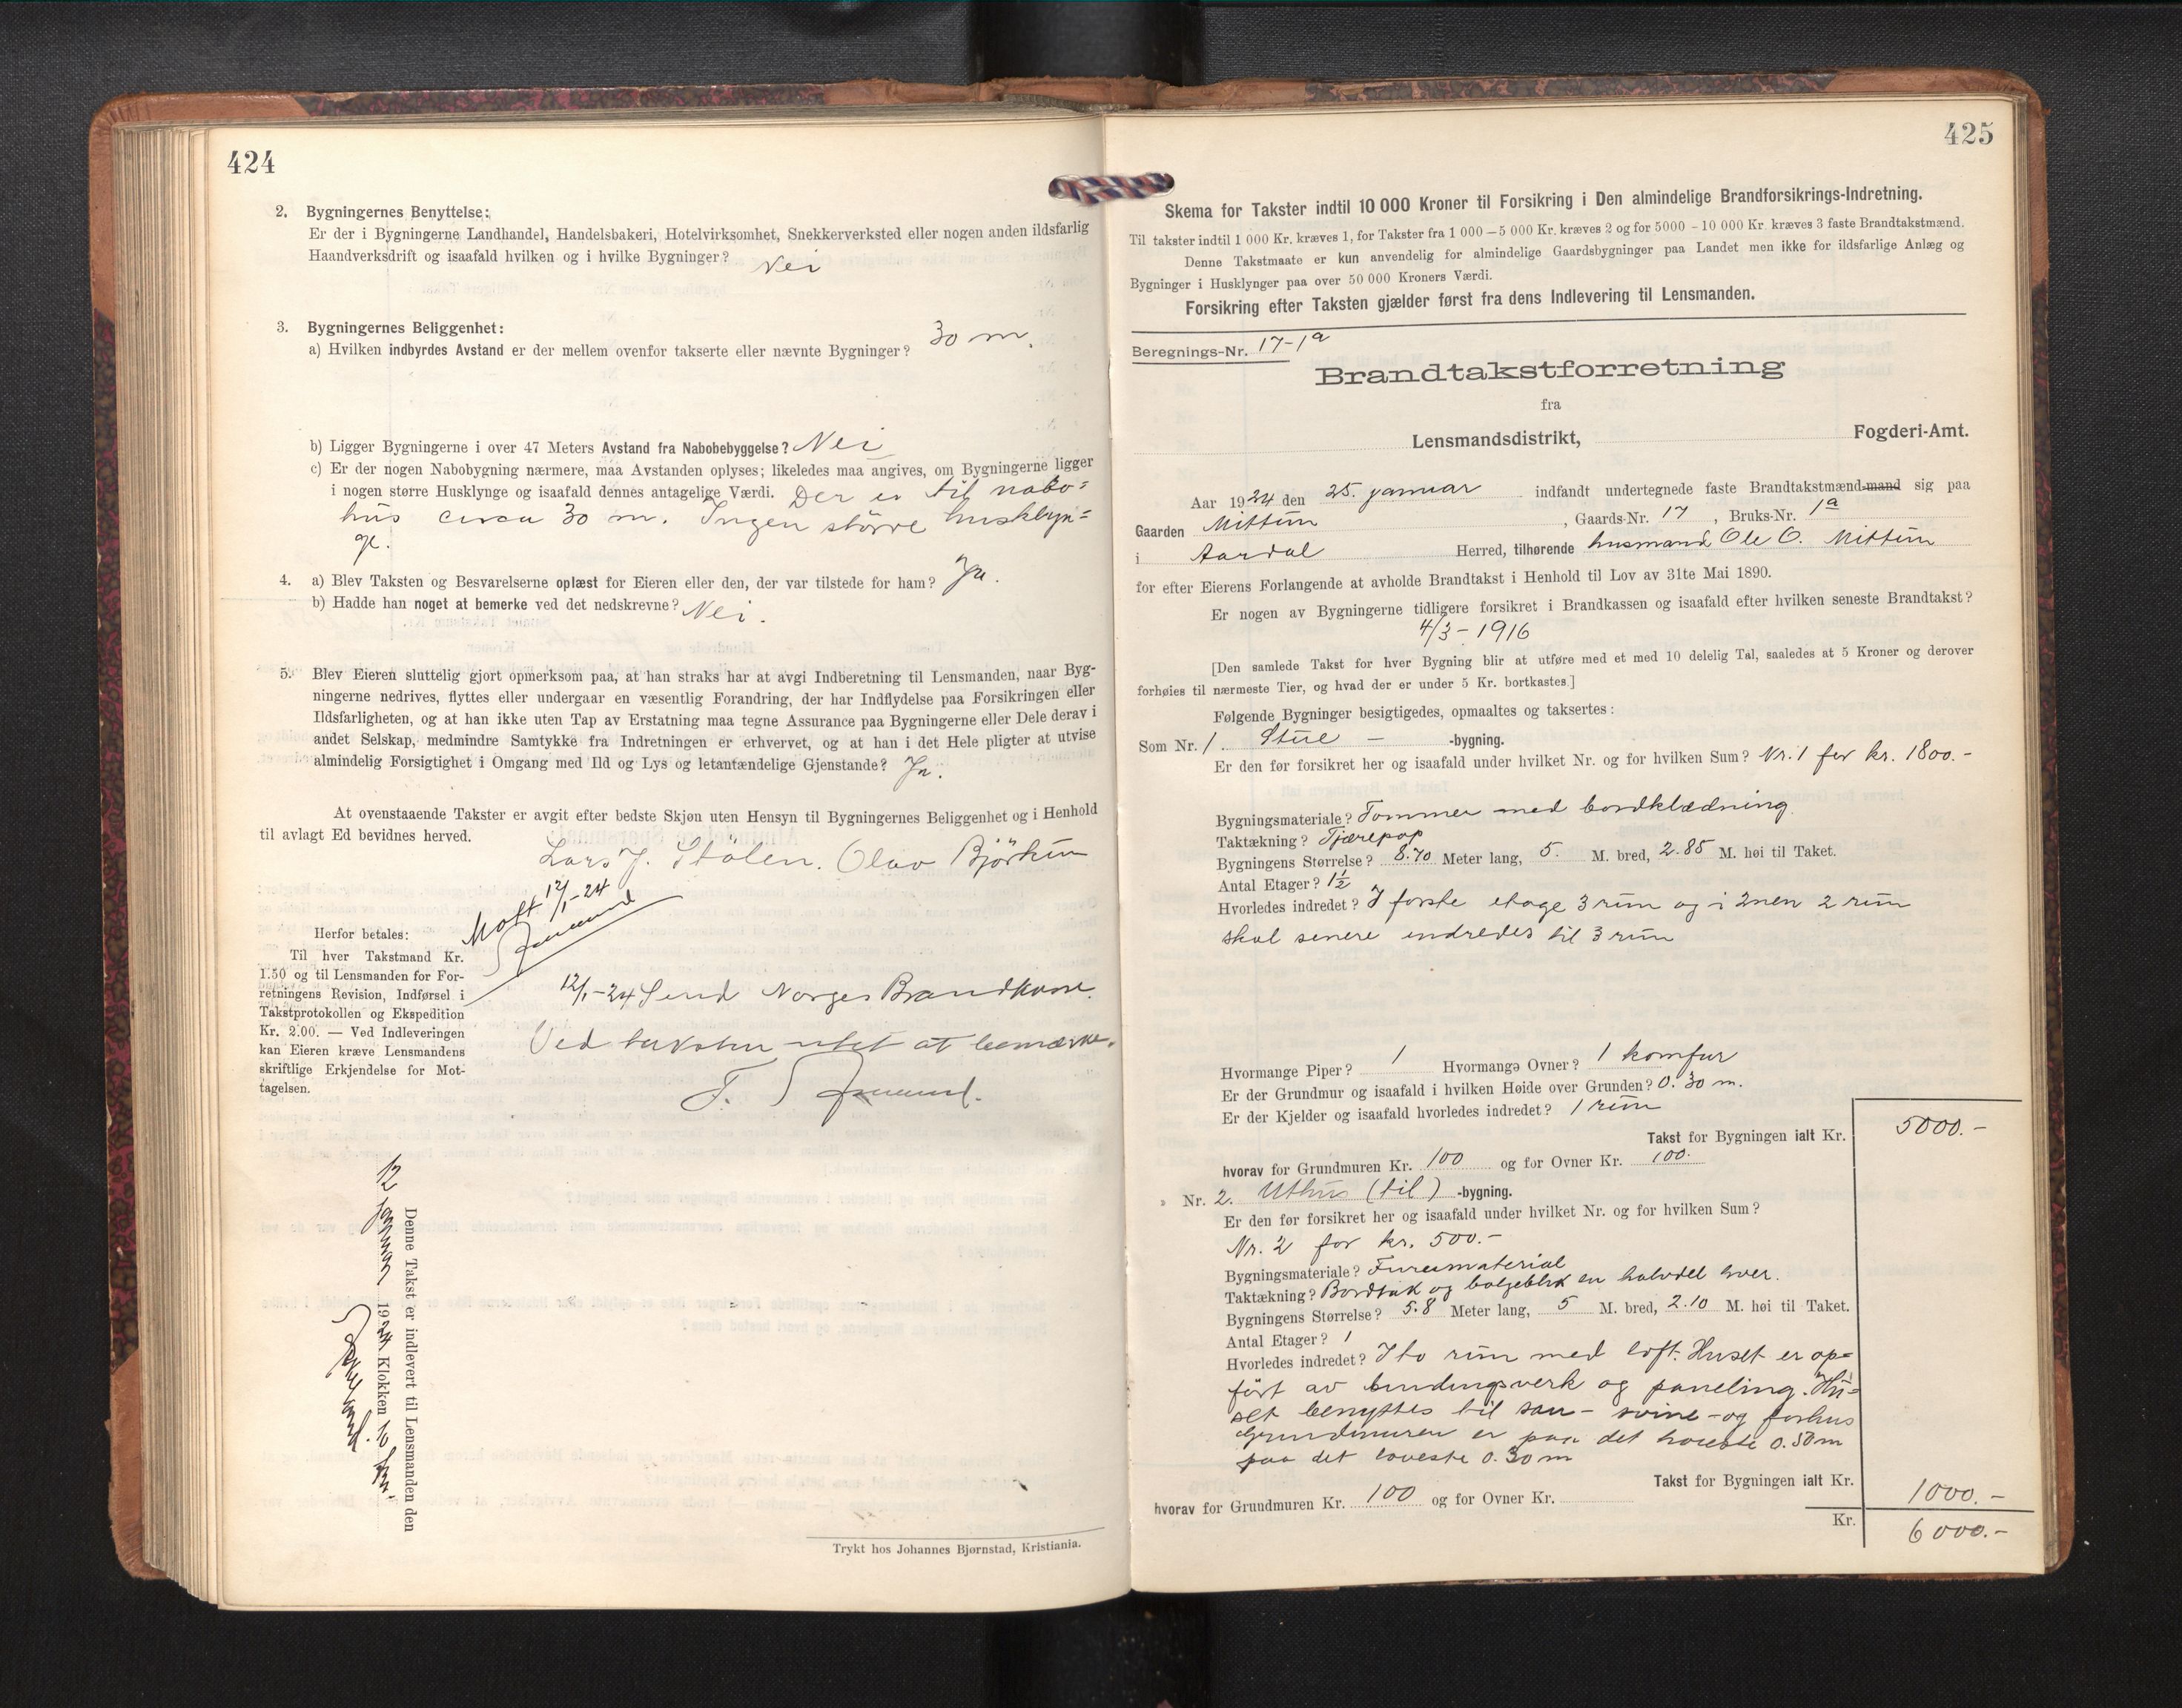 424
2. Bygningernes Benyttelse:
Er der i Bygningerne Landhandel, Handelsbakeri, Hotelvirksomhet, Snekkerverksted eller nogen anden ildsfarlig
Haandverksdrift og isaafald hvilken og i hvilke Bygninger? Nei
3. Bygningernes Beliggenhet:
a) Hvilken indbyrdes Avstand er der mellem ovenfor takserte eller nævnte Bygninger? 30 m.
b) Ligger Bygningerne i over 47 Meters Avstand fra Nabobebyggelse? Nei
c) Er der nogen Nabobygning nærmere, maa Avstanden oplyses; likeledes maa angives, om Bygningerne ligger
i nogen større Husklynge og isaafald dennes antagelige Værdi. Der er til nabo=
hus circa 30 m. Ingen större husklyn=
ge.
4. a) Blev Taksten og Besvarelserne oplæst for Eieren eller den, der var tilstede for ham? Ja.
b) Hadde han noget at bemerke ved det nedskrevne? Nei.
5. Blev Eieren sluttelig gjort opmerksom paa, at han straks har at avgi Indberetning til Lensmanden, naar Byg-
ningerne nedrives, flyttes eller undergaar en væsentlig Forandring, der har Indflydelse paa Forsikringen eller
Ildsfarligheten, og at han ikke uten Tap av Erstatning maa tegne Assurance paa Bygningerne eller Dele derav i
andet Selskap, medmindre Samtykke fra Indretningen er erhvervet, og at han i det Hele pligter at utvise
almindelig Forsigtighet i Omgang med Ild og Lys og letantændelige Gjenstande? Ja.
At ovenstaaende Takster er avgit efter bedste Skjøn uten Hensyn til Bygningernes Beliggenhet og i Henhold
til avlagt Ed bevidnes herved.
Lars J. Stölen. Olav Björkum
Mott 12/1-24
Herfor betales:
Til hver Takstmand Kr.
1.50 og til Lensmanden for For-
retningens Revision, Indførsel i
Takstprotokollen og Ekspedition
Kr. 2.00. — Ved Indleveringen
kan Eieren kræve Lensmandens
skriftlige Erkjendelse for Mot-
tagelsen.
12/1-24 Send Norges Brandkasse.
Ved taksten intet at bemærke.
Denne Takst er indlevert til Lensmanden den
12 januar 1924 Klokken 10 fm.
Trykt hos Johannes Bjørnstad, Kristiania.
425
Skema for Takster indtil 10 000 Kroner til Forsikring i Den almindelige Brandforsikrings-Indretning.
Til takster indtil 1 000 Kr. kræves 1, for Takster fra 1 000 — 5 000 Kr. kræves 2 og for 5000 - 10 000 Kr. kræves 3 faste Brandtakstmænd.
Denne Takstmaate er kun anvendelig for almindelige Gaardsbygninger paa Landet men ikke for ildsfarlige Anlæg og
Bygninger i Husklynger paa over 50 000 Kroners Værdi.
Forsikring efter Taksten gjælder først fra dens Indlevering til Lensmanden.
Beregnings-Nr. 17-1a
Brandtakstforretning
fra
Lensmandsdistrikt, Fogderi-Amt.
Aar 1924 den 25. januar indfandt undertegnede faste Brandtakstmænd-mand sig paa
Gaarden Mittun, Gaards-Nr. 17, Bruks-Nr. 1a
i Aardal Herred, tilhørende husmand Ole O. Mittun
for efter Eierens Forlangende at avholde Brandtakst i Henhold til Lov av 31te Mai 1890.
Er nogen av Bygningerne tidligere forsikret i Brandkassen og isaafald efter hvilken seneste Brandtakst?
4/3 - 1916
[Den samlede Takst for hver Bygning blir at utføre med et med 10 delelig Tal, saaledes at 5 Kroner og derover
forhøies til nærmeste Tier, og hvad der er under 5 Kr. bortkastes.]
Følgende Bygninger besigtigedes, opmaaltes og taksertes:
Som Nr. 1. Stue - -bygning.
Er den før forsikret her og isaafald under hvilket Nr. og for hvilken Sum? Nr. 1 for kr. 1800.-
Bygningsmateriale? Tommer med bordklædning.
Taktækning? Tjærepap
Bygningens Størrelse? 8.70 Meter lang, 5. M. bred, 2.85 M. høi til Taket.
Antal Etager? 1½
Hvorledes indredet? I forste etage 3 rum og i 2nen 2 rum
skal senere indredes til 3 rum
Hvormange Piper? 1 Hvormange Ovner? 1 komfur
Er der Grundmur og isaafald i hvilken Høide over Grunden? 0.30 m.
Er der Kjelder og isaafald hvorledes indredet? 1 rum
Takst for Bygningen ialt Kr. 5000.-
hvorav for Grundmuren Kr. 100 og for Ovner Kr. 100.
» Nr. 2. Uthus (til) -bygning.
Er den før forsikret her og isaafald under hvilket Nr. og for hvilken Sum?
Nr. 2 for kr. 500.-
Bygningsmateriale? Furumaterial
Taktækning? Bordtak og bolgeblik en halvdel hver.
Bygningens Størrelse? 5.8 Meter lang, 5 M. bred, 2.10 M. høi til Taket.
Antal Etager? 1
Hvorledes indredet? I to rum med loft. Huset er op=
fört av bindingsverk og paneling. Hu=
set benyttes til sau- svine- og forhus
Grundmuren er paa det hoieste 0.50 m
paa det laveste 0.30 m
Takst for Bygningen ialt Kr. 1000.-
hvorav for Grundmuren Kr. 100 og for Ovner Kr.
Kr. 6000.-